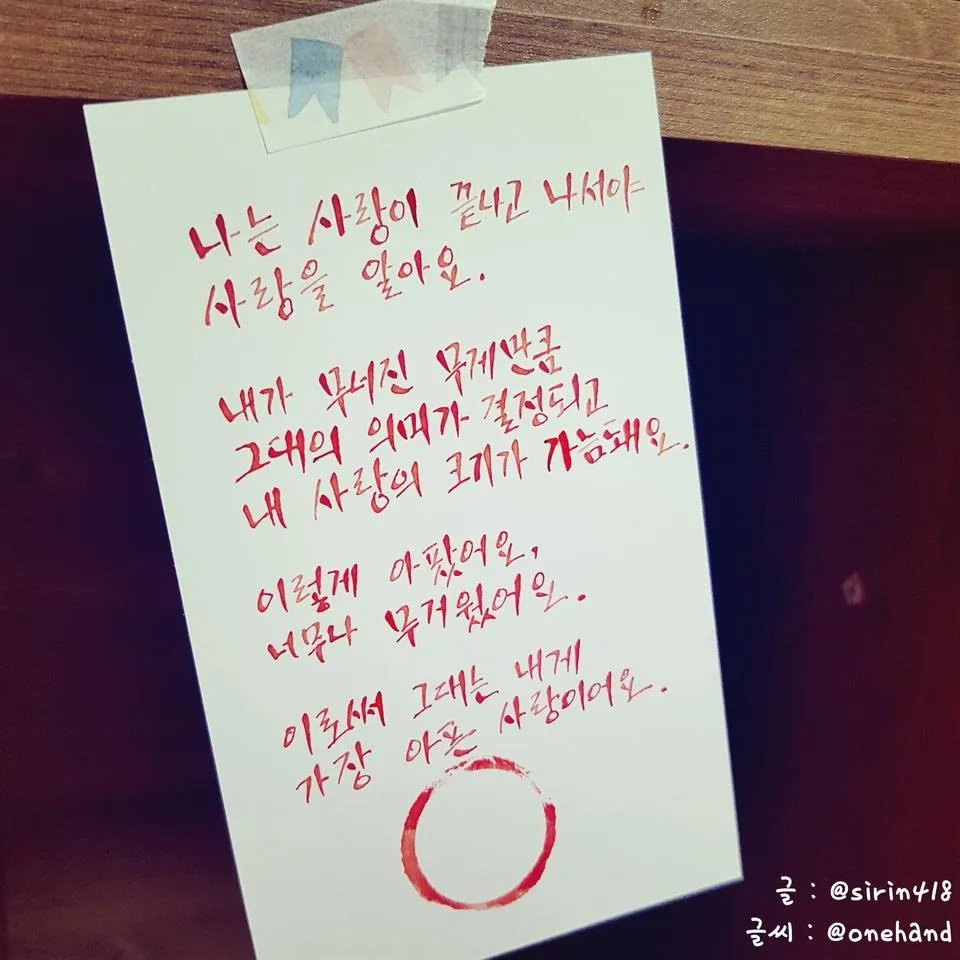 나는 사랑이 끝나고 나서야
사랑을 알아요.
내가 무너진 무게만큼
그대의 의미가 결정되고
내 사랑의 크기가 가늠돼요.
이렇게 아팠어요,
너무나 무거웠어요.
이로써 그대는 내게
가장 아픈 사랑이어요.
글 : @sirin418
글씨 : @onehand